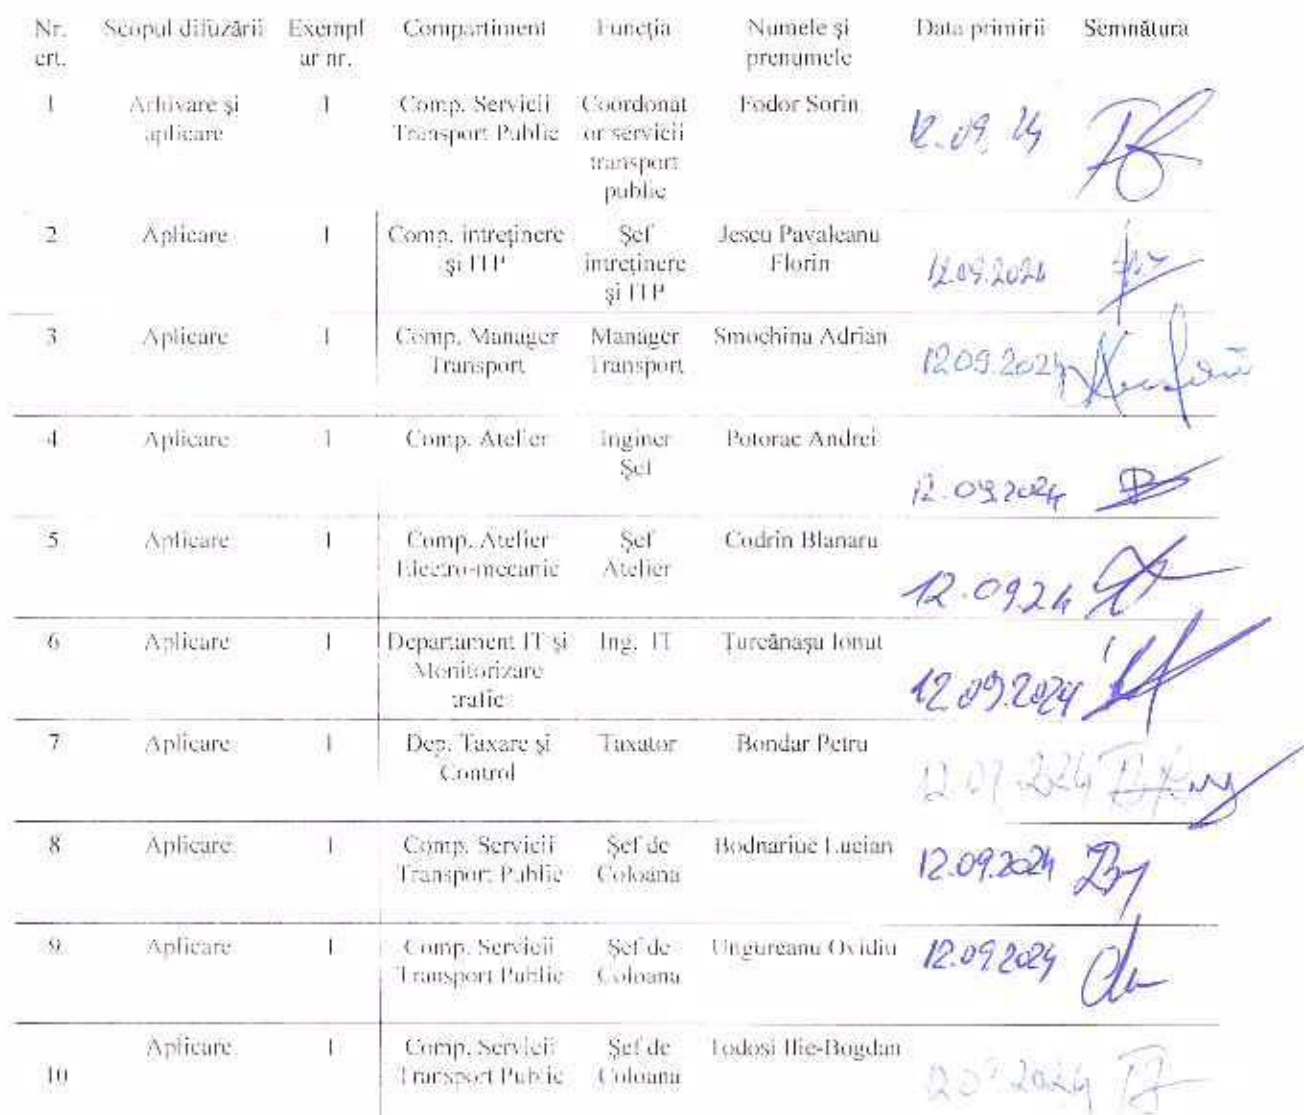 Nr. crt. Scopul difuzării Exemplar nr. Compartiment Funcția Numele și prenumele Data primirii Semnătura
1 Arhivare și aplicare 1 Comp. Servicii Transport Public Coordonator servicii transport public Fodor Sorin 12.09.24
2 Aplicare 1 Comp. intreținere și ITP Șef intreținere și ITP Jescu Pavaleanu Florin 12.09.2024
3 Aplicare 1 Comp. Manager Transport Manager Transport Smochina Adrian 12.09.2024
4 Aplicare 1 Comp. Atelier Inginer Șef Potorac Andrei 12.09.2024
5 Aplicare 1 Comp. Atelier Electro-mecanic Șef Atelier Codrin Blanaru 12.09.24
6 Aplicare 1 Departament IT și Monitorizare trafic Ing. IT Țurcănașu Ionut 12.09.2024
7 Aplicare 1 Dep. Taxare și Control Taxator Bondar Petru 12.09.2024
8 Aplicare 1 Comp. Servicii Transport Public Șef de Coloana Bodnariuc Lucian 12.09.2024
9. Aplicare 1 Comp. Servicii Transport Public Șef de Coloana Ungureanu Ovidiu 12.09.2024
10 Aplicare 1 Comp. Servicii Transport Public Șef de Coloana Todosi Ilie-Bogdan